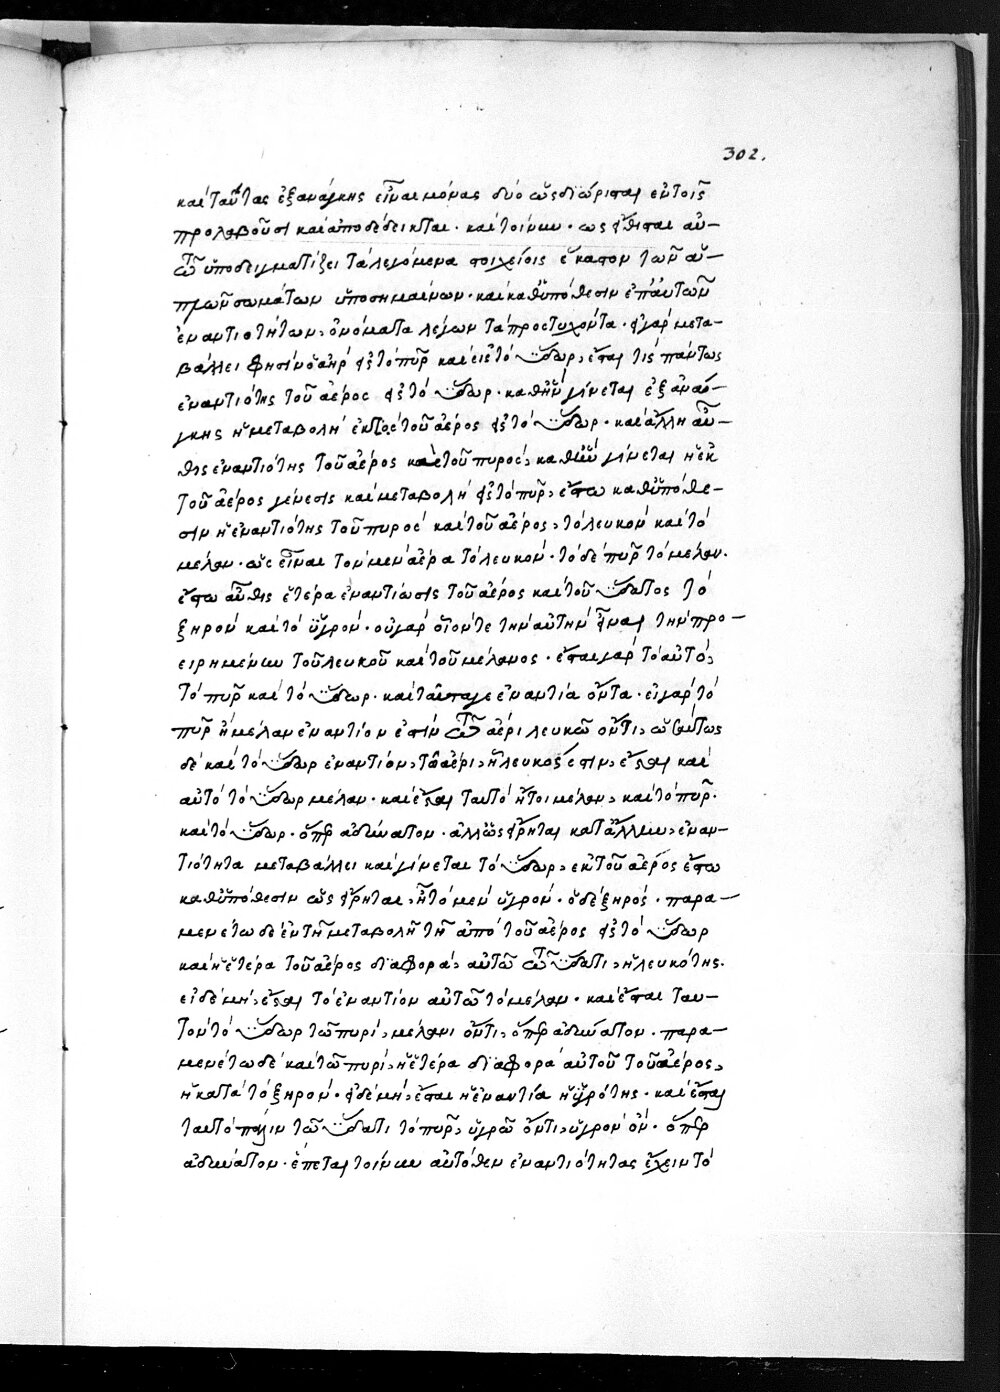 302.
καὶ ταύτας ἐξανάγκης εἶναι μόνας δύο ὡς διώρισται ἐν τοῖς
προλαβοῦσι καὶ ἀποδέδεικται· καὶ τοίνυν· ὡς εἴθισται αὐ–
τῷ ὑποδειγματίζει τὰ λεγόμενα στοιχείοις ἕκαστον τῶν αὐ–
πλῶν σωμάτων ὑποσημαίνων· καὶ καθ' ὑπόθεσιν ἐπ' αὐτῶν
ἐναντιοτήτων, ὀνόματα λέγων τὰ προστυχόντα· εἰ γὰρ μετα–
βάλλει φησὶν ὁ ἀὴρ εἰς τὸ πῦρ καὶ εἰς τὸ ὕδωρ, ἔσται τίς πάντως
ἐναντιότης τοῦ ἀέρος εἰς τὸ ὕδωρ· καθ' ἣν γίνεται ἐξ ἀνά–
γκης ἡ μεταβολὴ ἐκ τοῦ ἀέρος εἰς τὸ ὕδωρ· καὶ ἄλλη αὖ–
θις ἐναντιότης τοῦ ἀέρος καὶ τοῦ πυρός, καθ' ἣν γίνεται ἡ ἐκ
τοῦ ἀέρος γένεσις καὶ μεταβολὴ εἰς τὸ πῦρ, ἔστω καθ' ὑπόθε–
σιν ἡ ἐναντιότης τοῦ πυρὸς καὶ τοῦ ἀέρος, τὸ λευκὸν καὶ τὸ
μέλαν· ὡς εἶναι τὸν μὲν ἀέρα τὸ λευκόν· τὸ δὲ πῦρ τὸ μέλαν.
ἔστω αὖθις ἑτέρα ἐναντίωσις τοῦ ἀέρος καὶ τοῦ ὕδατος τὸ
ξηρὸν καὶ τὸ ὑγρόν· οὐ γὰρ οἷόν τε τὴν αὐτὴν εἶναι τὴν προ–
ειρημένην τοῦ λευκοῦ καὶ τοῦ μέλανος· ἔσται γὰρ τὸ αὐτό,
τὸ πῦρ καὶ τὸ ὕδωρ· καὶ ταῦτά γε ἐναντία ὄντα· εἰ γὰρ τὸ
πῦρ ἢ μέλαν ἐναντίον ἐστὶν τῷ ἀέρι λευκῷ ὄντι, ὡσαύτως
δὲ καὶ τὸ ὕδωρ ἐναντίον, τῷ ἀέρι, ᾗ λευκός ἐστιν, ἔσται καὶ
αὐτὸ τὸ ὕδωρ μέλαν· καὶ ἔσται ταυτὸ ἤτοι μέλαν, καὶ τὸ πῦρ·
καὶ τὸ ὕδωρ· ὅπερ ἀδύνατον· ἀλλ' ὡς εἴρηται κατ' ἄλλην, ἐναν–
τιότητα μεταβάλλει καὶ γίνεται τὸ ὕδωρ, ἐκ τοῦ ἀέρος ἔστω
καθ' ὑπόθεσιν ὡς εἴρηται, ᾗ τὸ μὲν ὑγρόν· ὁ δὲ ξηρός· παρα–
μενέτω δὲ ἐν τῇ μεταβολῇ τῇ ἀπὸ τοῦ ἀέρος εἰς τὸ ὕδωρ
καὶ ἡ ἑτέρα τοῦ ἀέρος διαφορά, αὐτῷ τῷ ὕδατι, ἡ λευκότης.
εἰ δὲ μή, ἔσται τὸ ἐναντίον αὐτῷ τὸ μέλαν· καὶ ἔσται ταυ–
τὸν τὸ ὕδωρ τῷ πυρί, μέλανι ὄντι, ὅπερ ἀδύνατον· παρα–
μενέτω δὲ καὶ τῷ πυρί, ἡ ἑτέρα διαφορὰ αὐτοῦ τοῦ ἀέρος,
ἡ κατὰ τὸ ξηρόν· εἰ δὲ μή, ἔσται ἡ ἐναντία ἡ ὑγρότης· καὶ ἔσται
ταυτὸ πάλιν τῷ ὕδατι τὸ πῦρ, ὑγρῷ ὄντι, ὑγρὸν ὄν· ὅπερ
ἀδύνατον· ἕπεται τοίνυν αὐτόθεν ἐναντιότητας ἔχειν τὸ